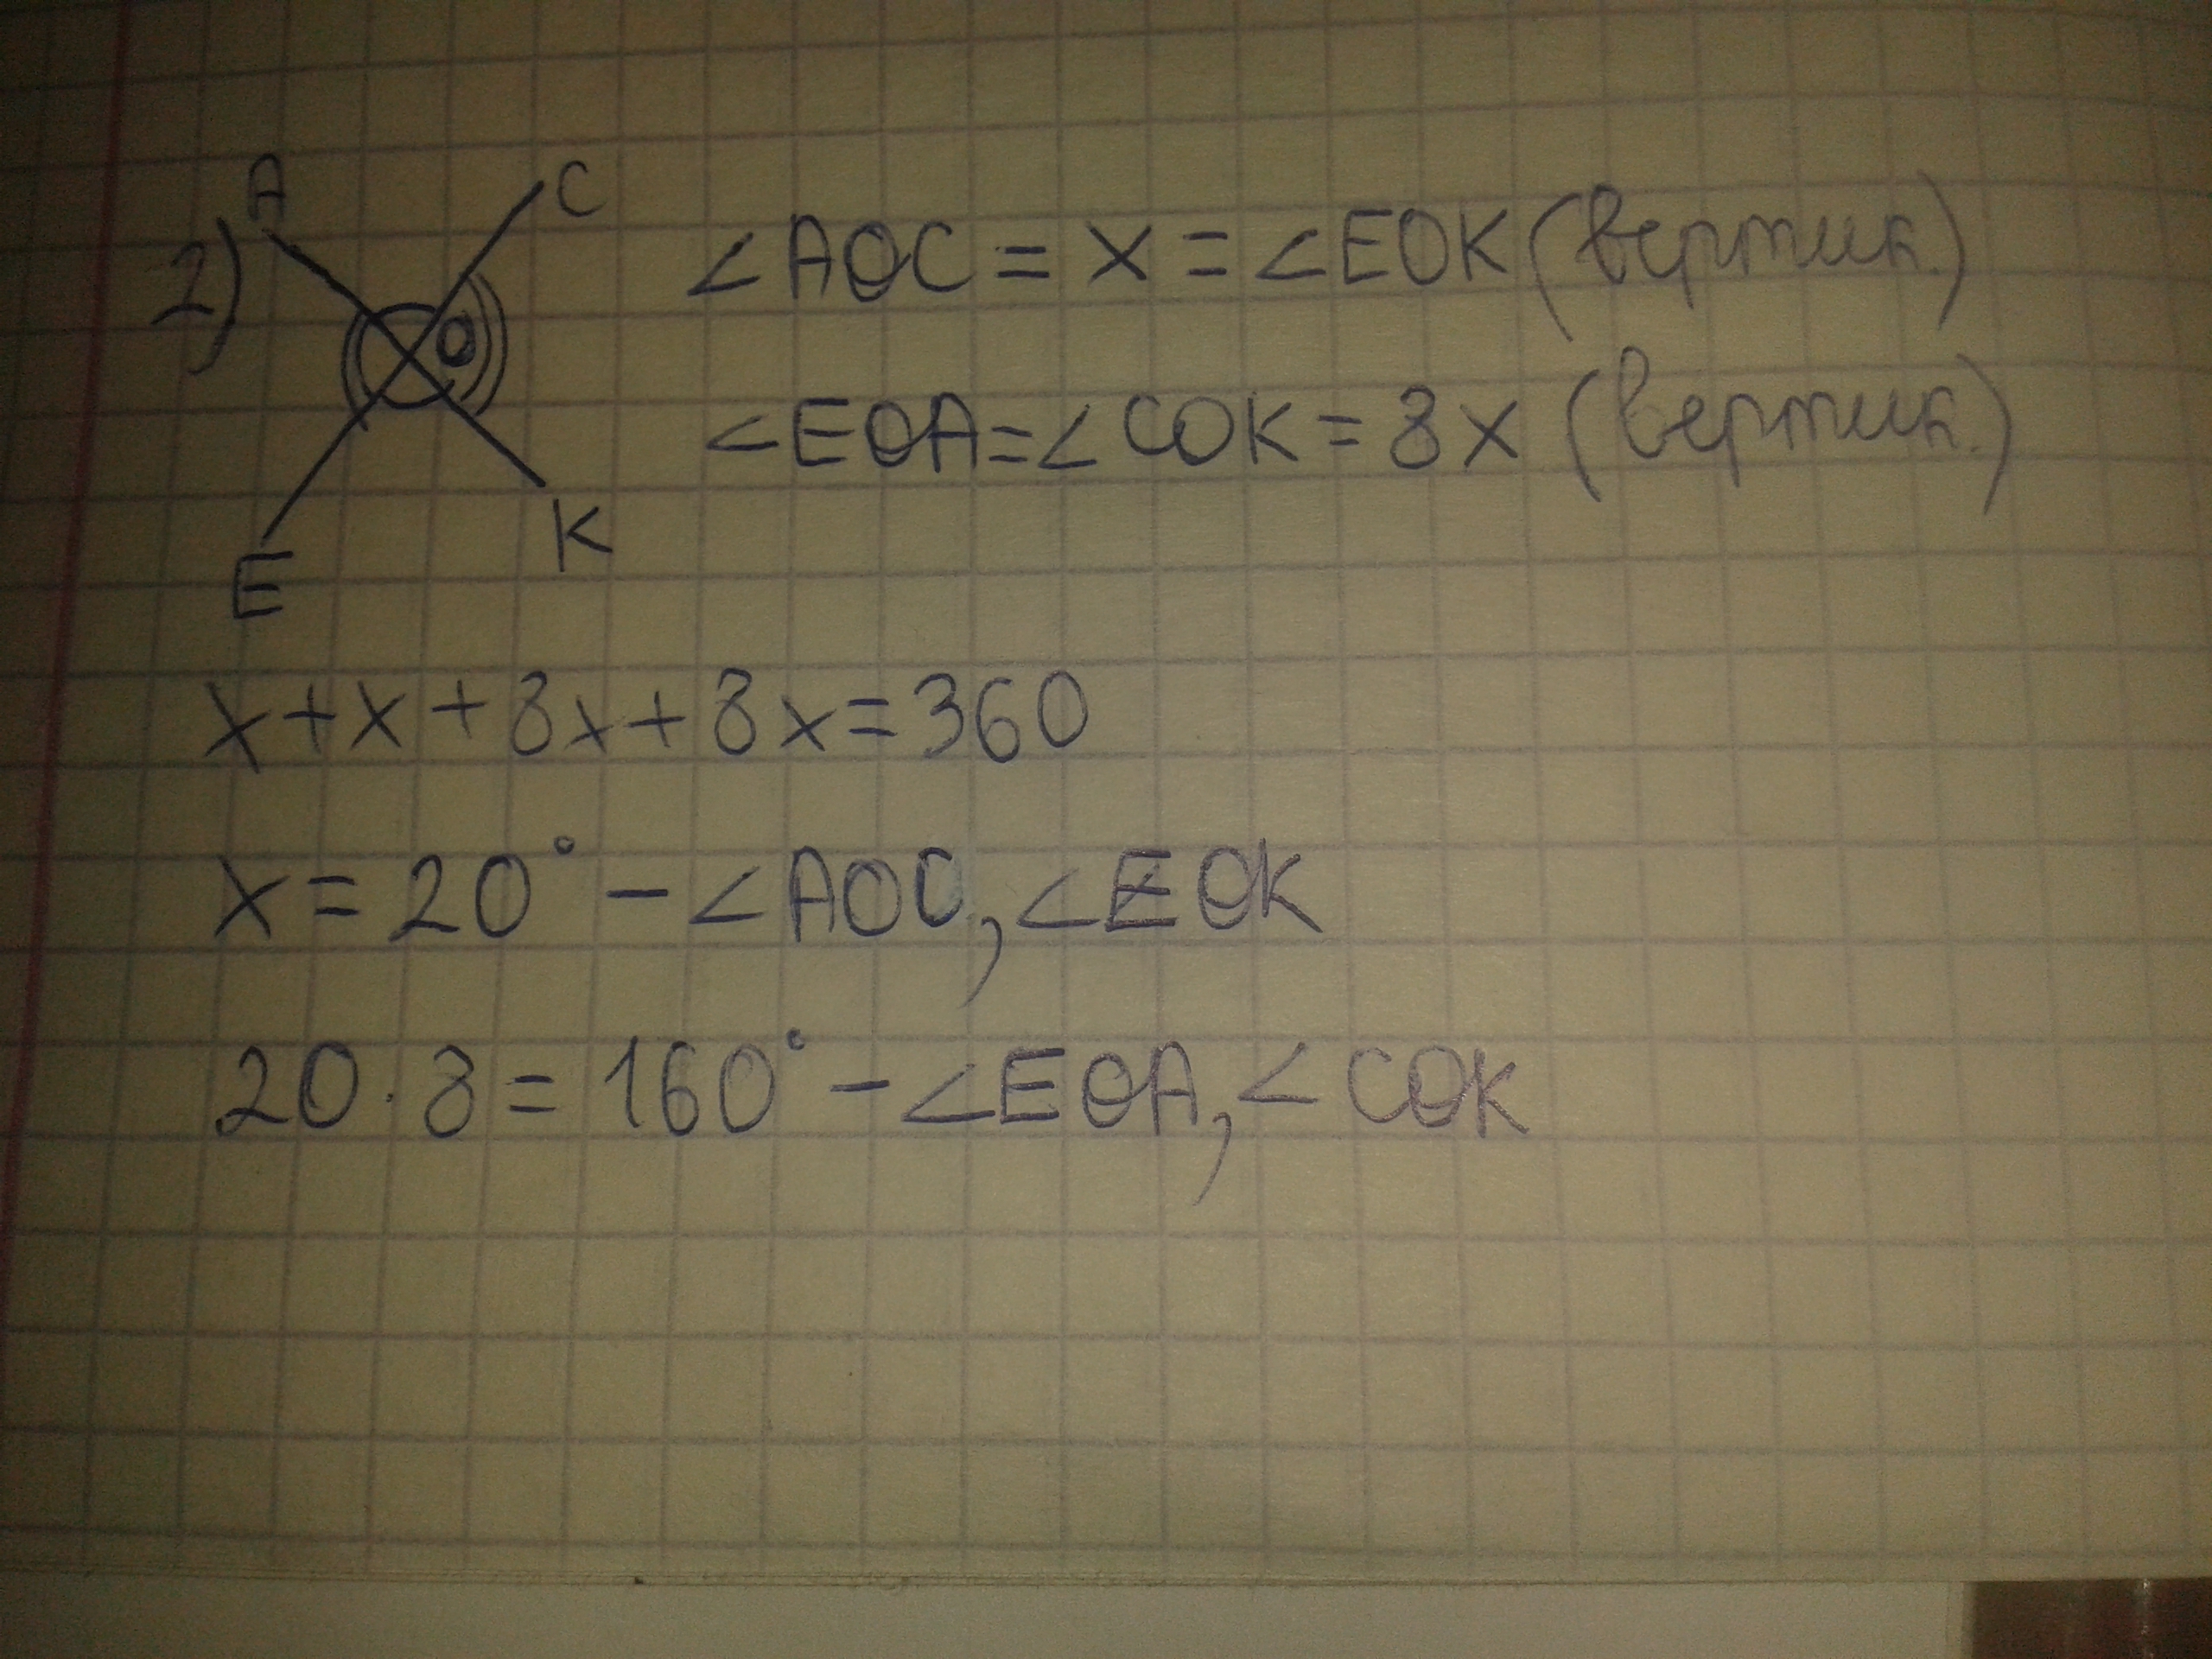 2)
A
C
O
E
K
∠AOC = x = ∠EOK (вертик.)
∠EOA = ∠COK = 8x (вертик.)
x + x + 8x + 8x = 360
x = 20° - ∠AOC, ∠EOK
20 · 8 = 160° - ∠EOA, ∠COK